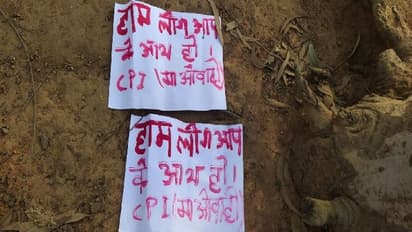 हाम लोग आप
के आथ हो।
CPI (माओवादी)
हाम लोग आप
के आथ हो।
CPI (माओवादी)